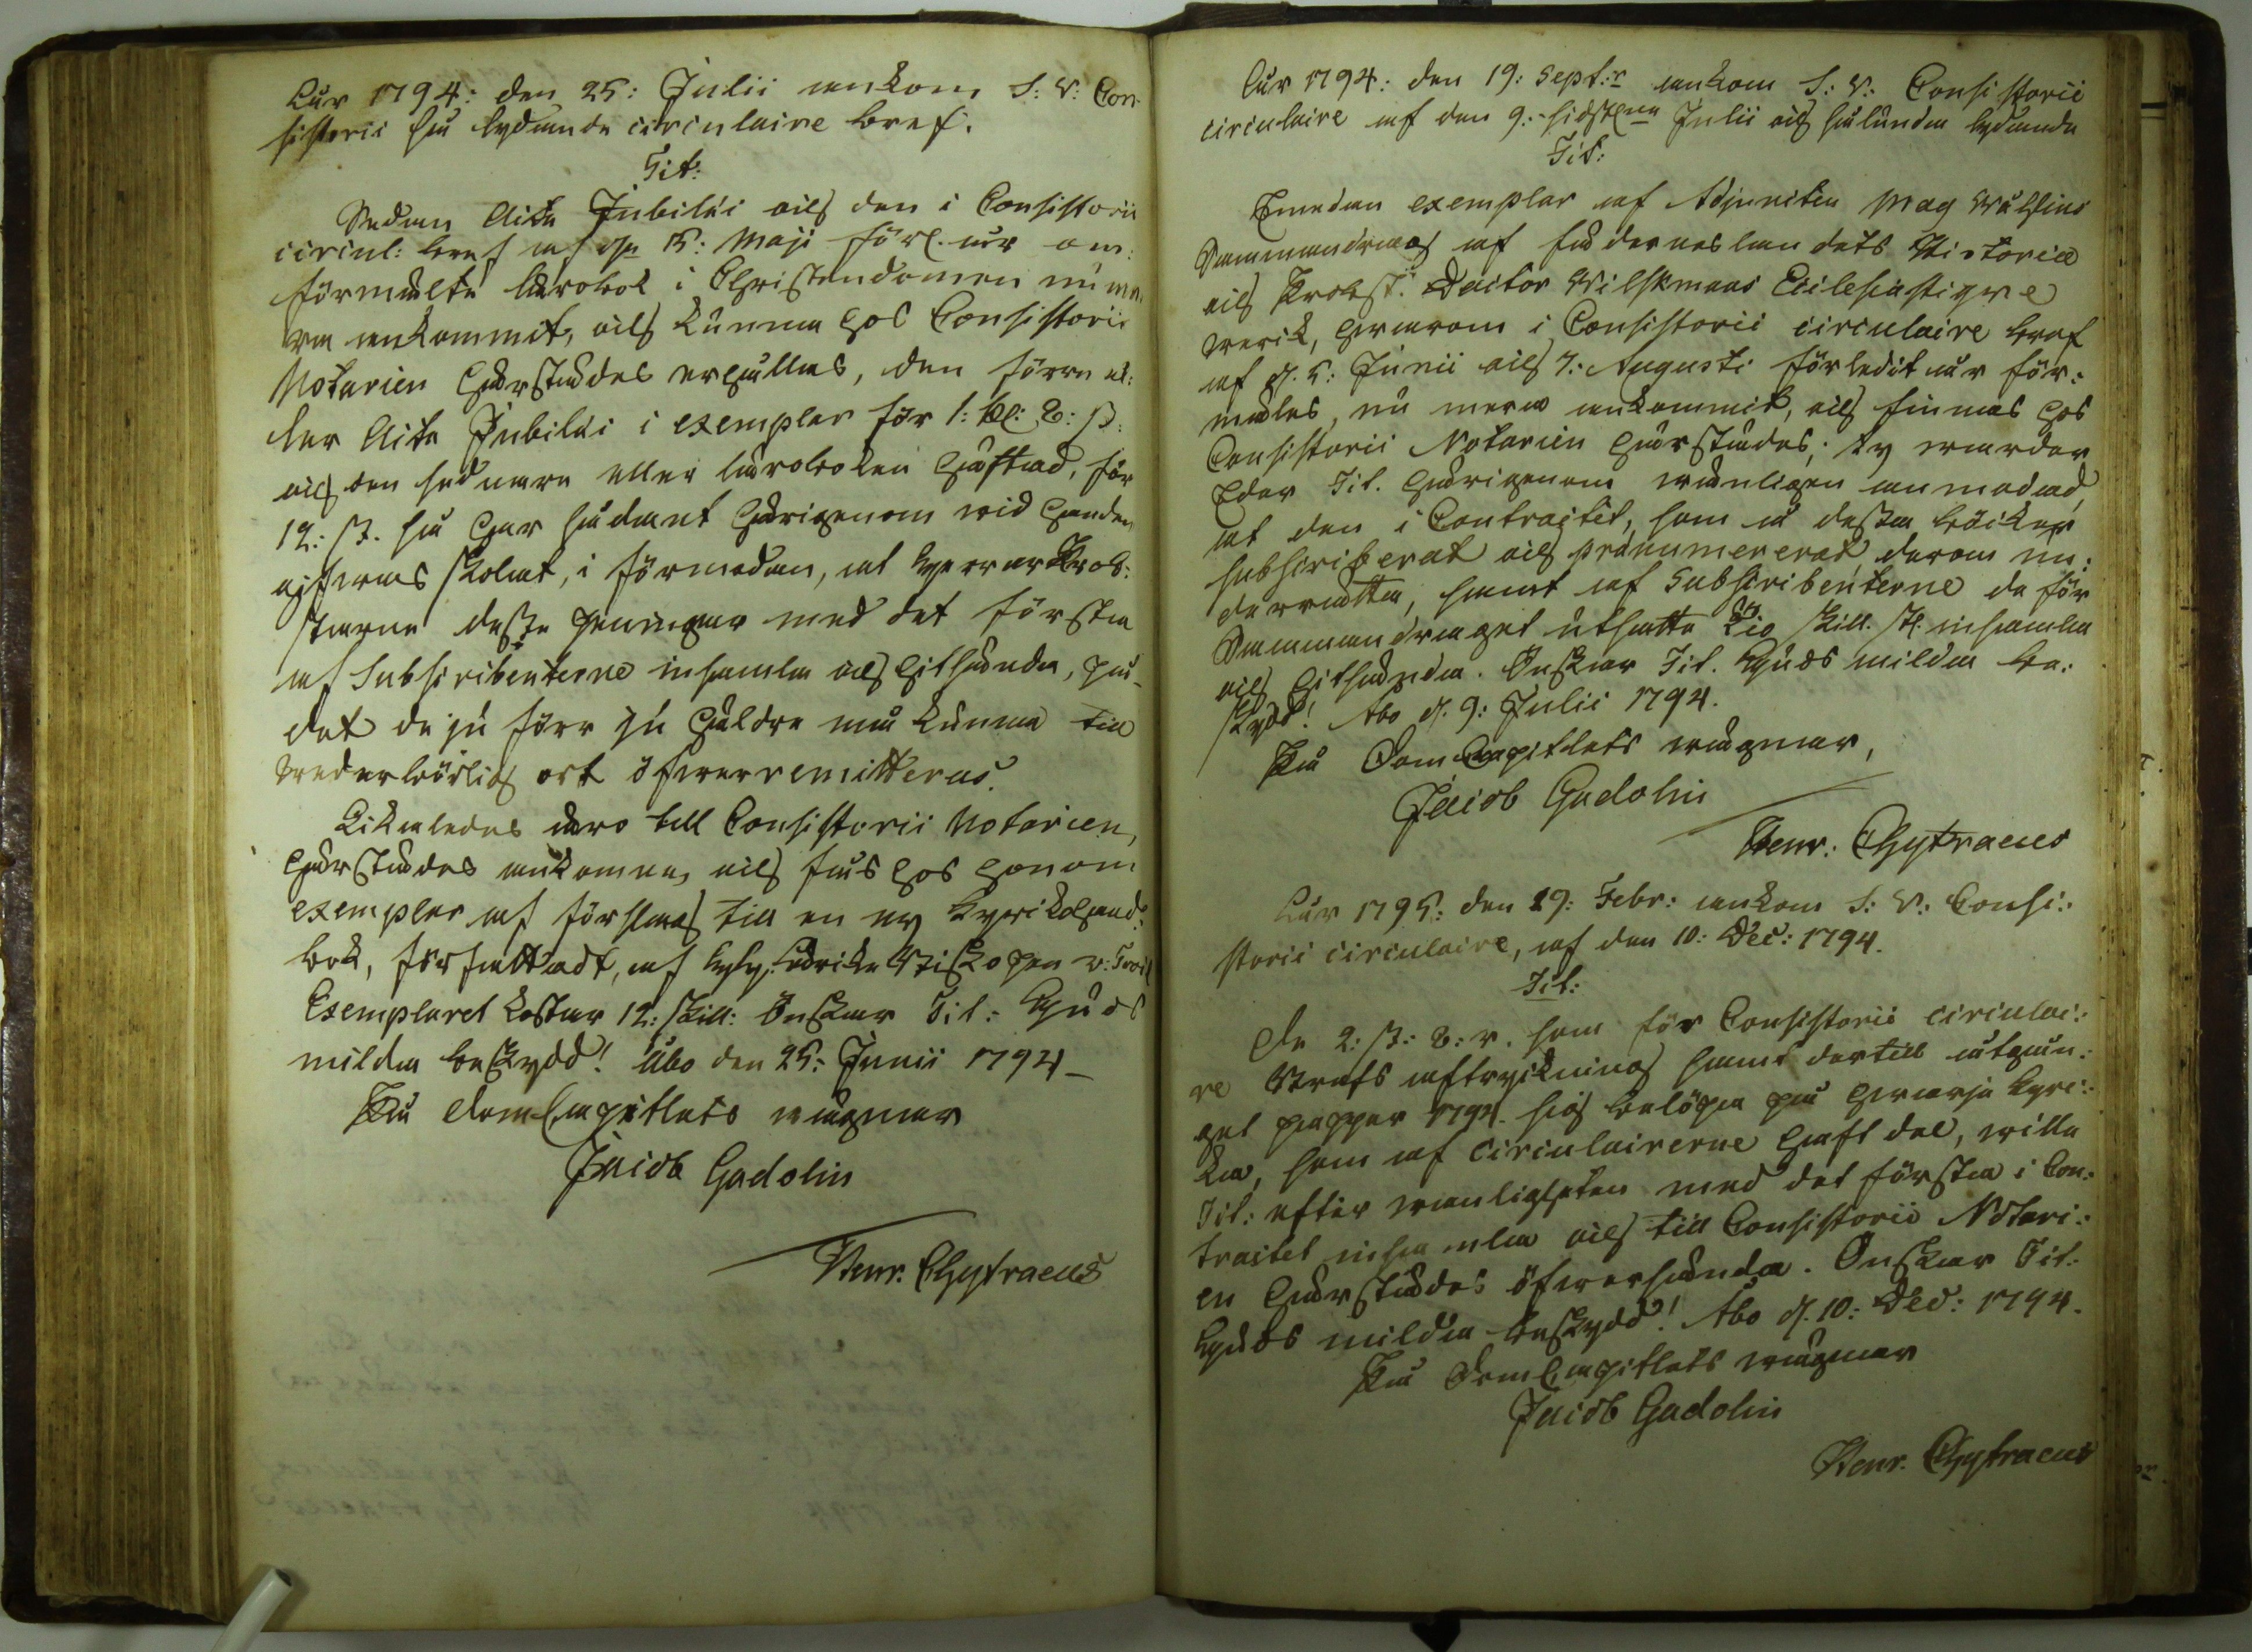 Åhr 1794: den 25: Julii ankom S: V: Con-
sistorii så lydande circulaire bref.
Tit:
Sedan Acta Jubilæi och den i Consistorii
circul: bref af d. 15: Maji förl. år om-
förmälte lärobok i Christendomen nu me-
ra ankommit, och kunna hos Consistorii
Notarien härstädes erhållas, den förra el-
ler Acta Jubilæi i exemplar för 1: 8: ß:
och den sednare eller läroboken häftad, för
12: ß. så har sådant härigenom wid handen
gifwas skolat, i förmodan, at Herrar Prob-
starne desse penningar med det första
af Subscribenterne insamla och hitsända, på
det de ju förr ju häldre må kunna till
wederbörlig ort öfwerremitteras.
Likaledes äro till Consistorii Notarien,
härstädes ankomne, och fås hos honom
exemplar af förslag till en ny Kyrkohand-
bok, författadt, af Biskopen v: Troil
Exemplaret kostar 12: skill: Önskar Tit: Guds
milda beskydd! Åbo den 25: Junii 1794
På DomCapitlets wägnar
Jacob Gadolin
Henr. Chytraeus
Åhr 1794: den 19: Sept:r ankom S: V: Consistorii
circulaire af den 9: sidstl:ne Julii och sålunda lydande
Tit:
Emedan exemplar af Adjuncten Mag Wallins
Sammandrag af fäderneslandets Historia
och Probst. Doctor Wilskmans Ecclesiastique
werck, hwarom i Consistorii circulaire bref
af d. 5: Junii och 7: Augusti förledit år för-
mäles, nu mera ankommit, och finnas hos
Consistorii Notarien härstädes; ty warder
Eder Tit. härigenom wänligen anmodad,
at den i Contractet, som å dessa böcker
subscriberat och pränumererat derom un-
derrätta, samt af Subscribenterne de för
Sammandraget utsatte Tio skill. sp. insamla
och hitsända. Önskar Tit. Guds milda be-
skydd! Åbo d. 9: Julii 1794.
På DomCapitlets wägnar,
Jacob Gadolin
Henr: Chytraeus
Åhr 1795: den 19: Febr: ankom S: V: Consi-
storii circulaire, af den 10: Dec: 1794.
Tit:
De 2: ß: 8: r. som för Consistorii circulai-
re Brefs aftryckning samt dertill åtgån-
get papper 1794. sig belöpa på hwarje Kyrc-
ka, som af circulairerne haft del, wille
Tit: efter wanligheten med det första i Con-
tractet insamla och till Consistorii Notari-
en härstädes öfwersända. Önskar Tit:
Guds milda beskydd! Åbo d. 10: Dec: 1794.
På DomCapitlets wägnar
Jacob Gadolin
Henr. Chytraeus